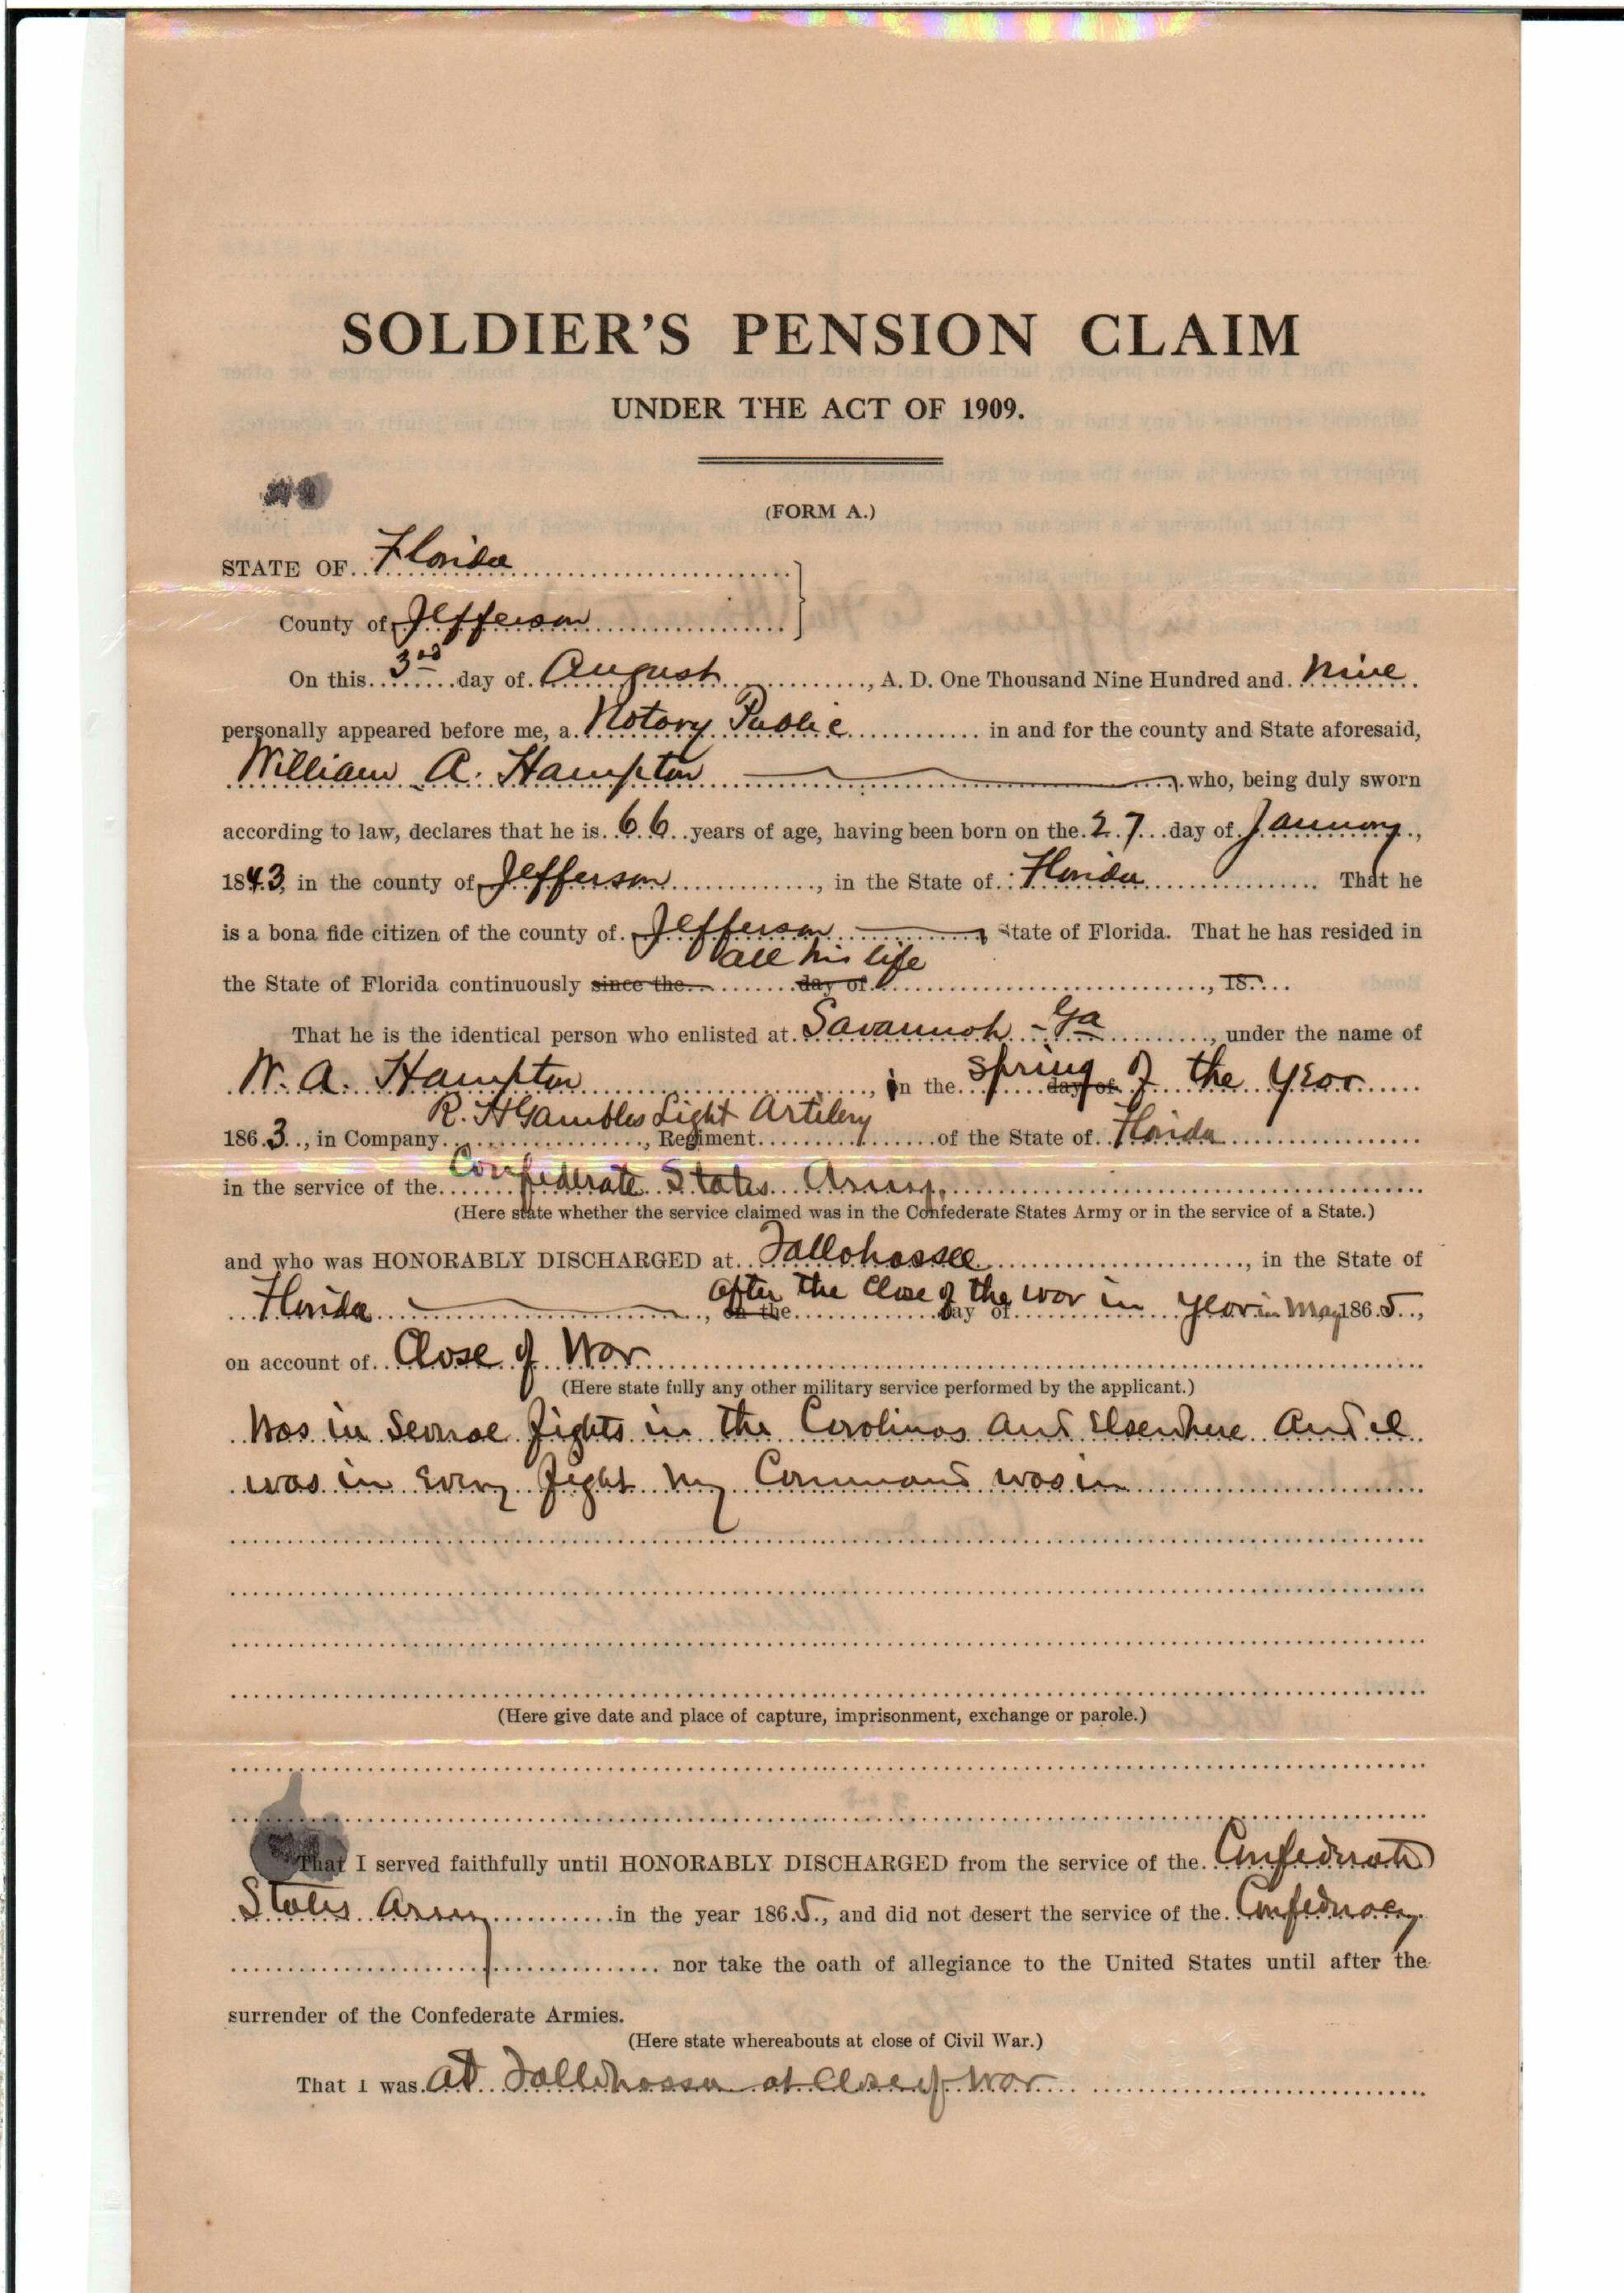 SOLDIER'S PENSION CLAIM
UNDER THE ACT OF 1909.
(FORM A.)
STATE OF Florida
County of Jefferson
On this 3rd day of August, A. D. One Thousand Nine Hundred and Nine
personally appeared before me, a Notary Public in and for the county and State aforesaid,
William A. Hampton who, being duly sworn
according to law, declares that he is 66 years of age, having been born on the 27 day of January,
1843, in the county of Jefferson, in the State of Florida That he
is a bona fide citizen of the county of Jefferson, State of Florida. That he has resided in
all his life
the State of Florida continuously since the day of, 18
That he is the identical person who enlisted at Savannah - Ga, under the name of
W. A. Hampton, in the Spring day of of the year
R. H Gambles Light Artilery
1863, in Company, Regiment of the State of Florida
in the service of the Confederate States Army,
(Here state whether the service claimed was in the Confederate States Army or in the service of a State.)
and who was HONORABLY DISCHARGED at Tallahassee, in the State of
after the close of the war in
Florida, on the day of year in May 1865,
on account of Close of War
(Here state fully any other military service performed by the applicant.)
Was in fights in the Carolinas and Elsewhere and
was in Every fight my Command was in
(Here give date and place of capture, imprisonment, exchange or parole.)
That I served faithfully until HONORABLY DISCHARGED from the service of the Confederate
States Army in the year 1865, and did not desert the service of the Confederacy
nor take the oath of allegiance to the United States until after the
surrender of the Confederate Armies.
(Here state whereabouts at close of Civil War.)
That I was at Tallahassee at Close of War